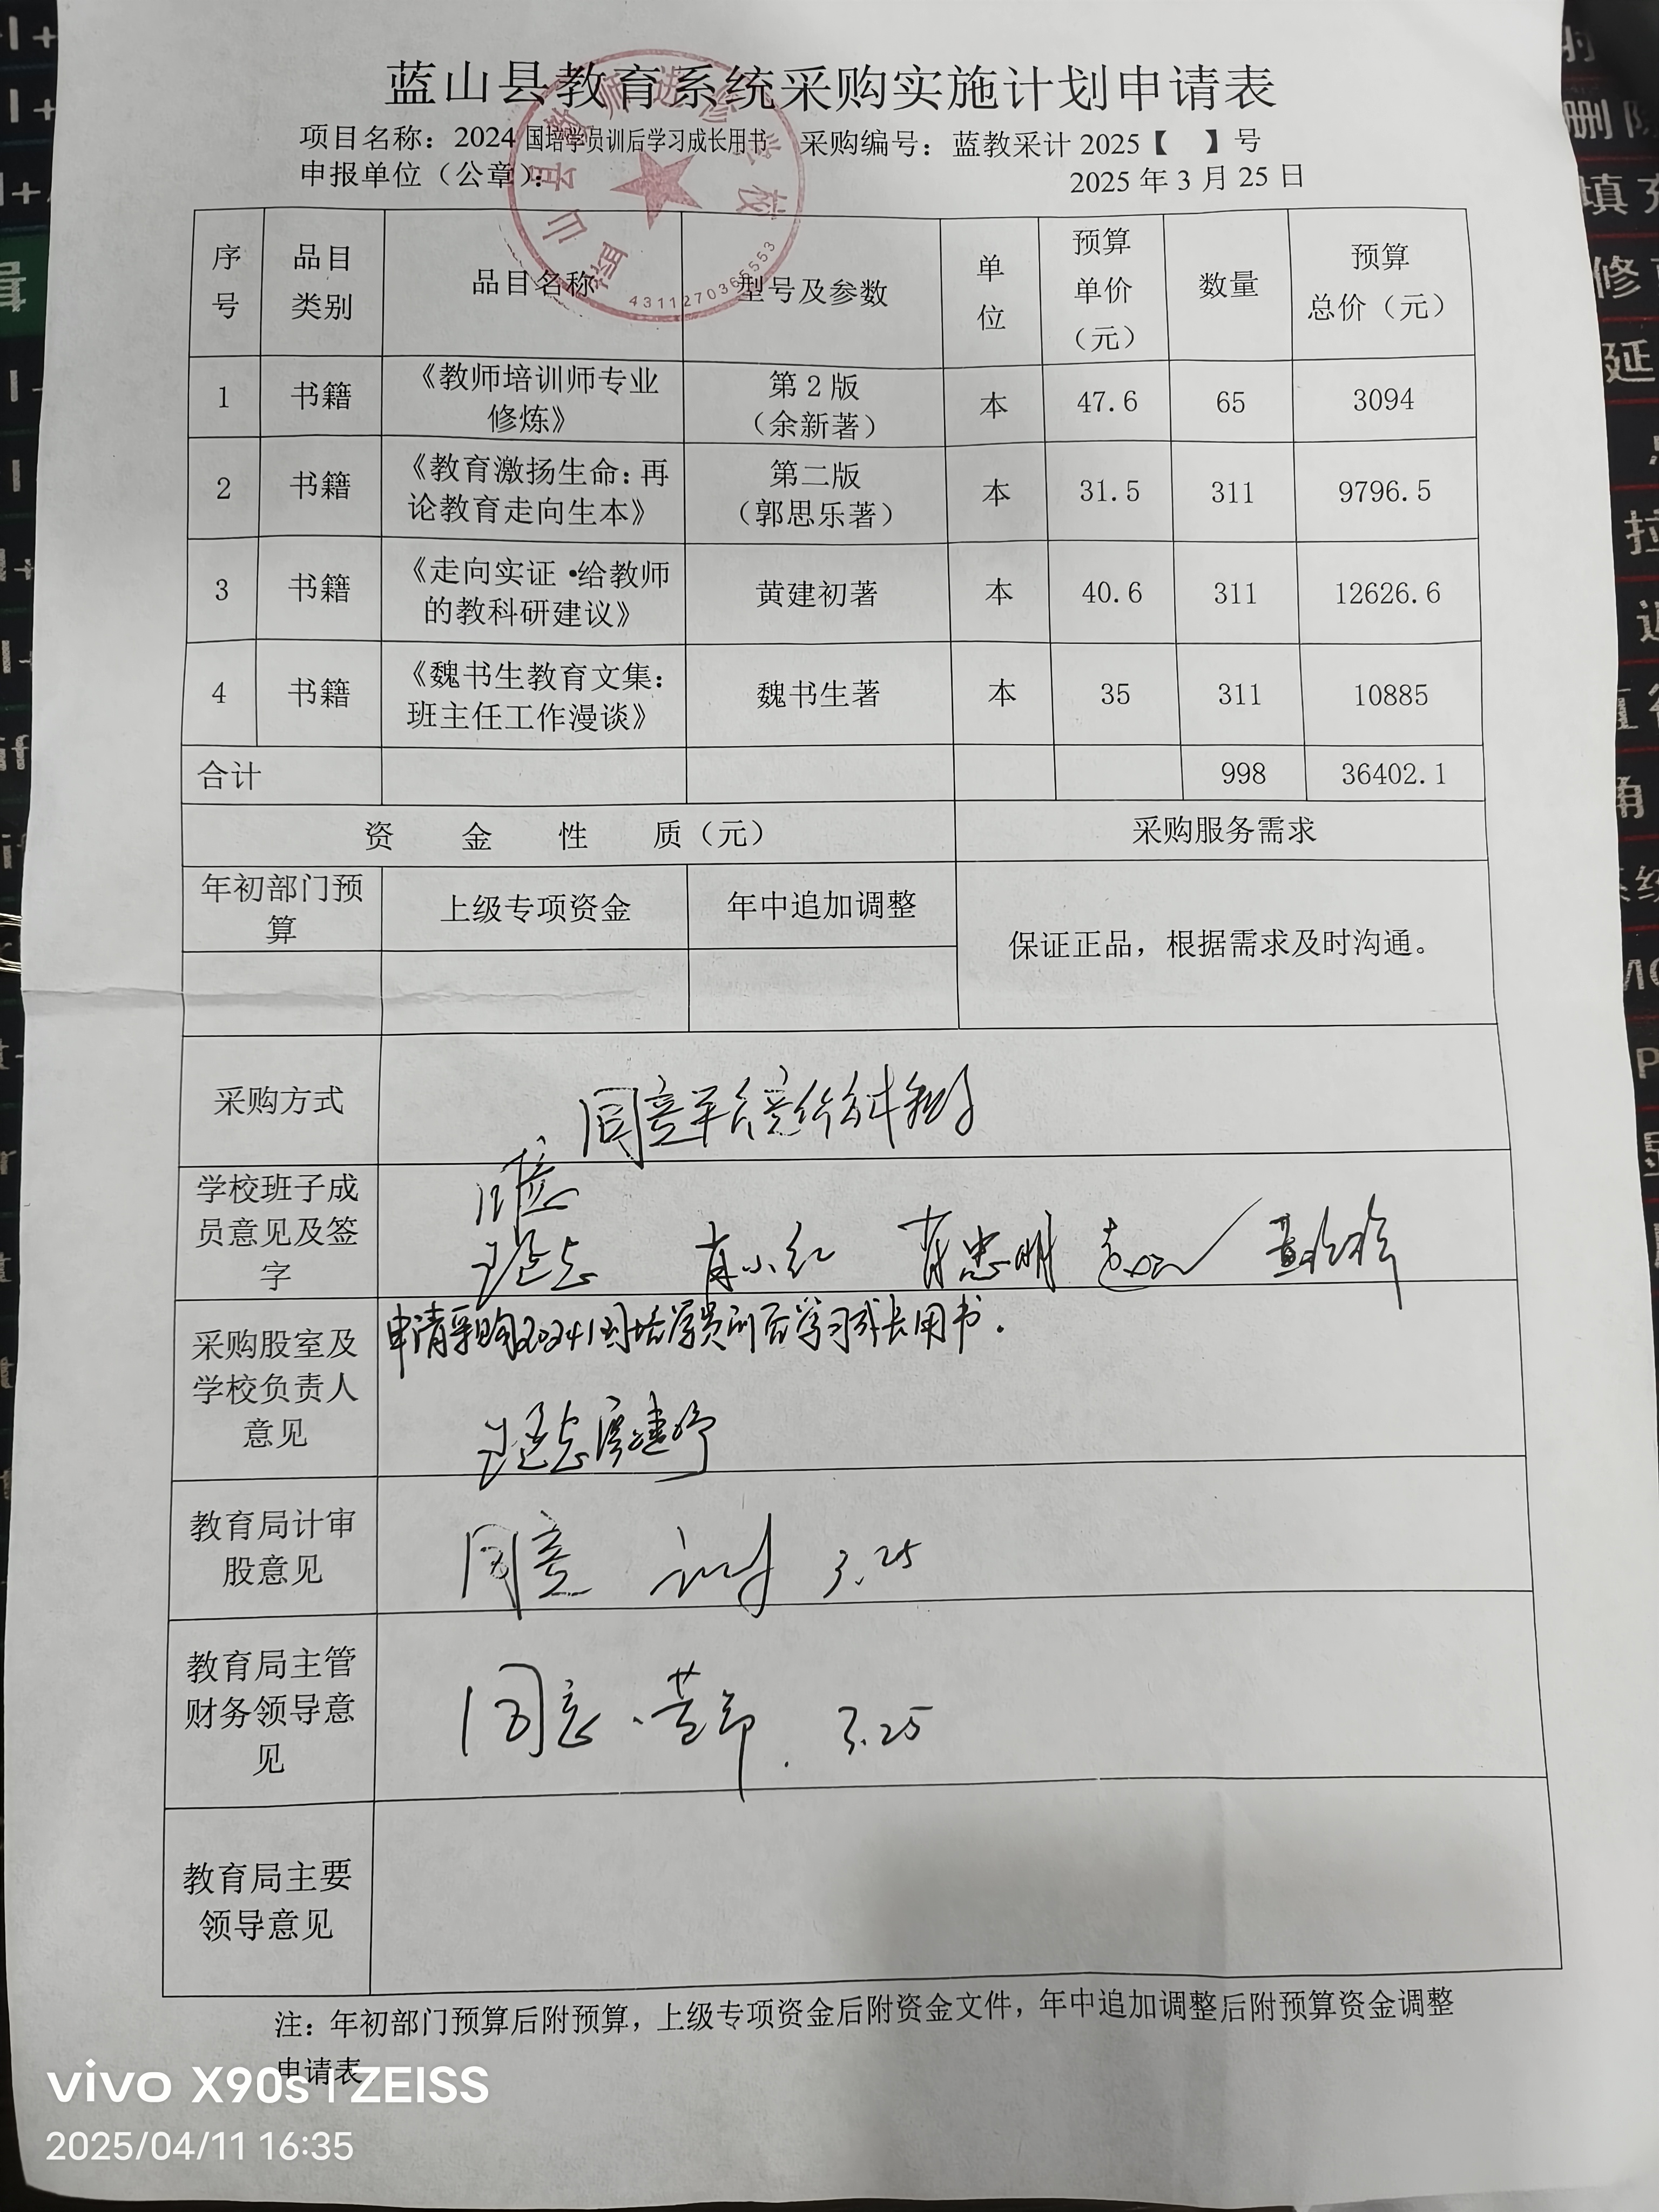 蓝山县教育系统采购实施计划申请表
项目名称：2024 国培学员训后学习成长用书 采购编号：蓝教采计 2025【 】号
申报单位（公章）： 2025 年 3 月 25 日
蓝山县教师进修学校
4311270365553
序号 品目类别 品目名称 型号及参数 单位 预算单价（元） 数量 预算总价（元）
1 书籍 《教师培训师专业修炼》 第 2 版（余新著） 本 47.6 65 3094
2 书籍 《教育激扬生命：再论教育走向生本》 第二版（郭思乐著） 本 31.5 311 9796.5
3 书籍 《走向实证·给教师的教科研建议》 黄建初著 本 40.6 311 12626.6
4 书籍 《魏书生教育文集：班主任工作漫谈》 魏书生著 本 35 311 10885
合计 998 36402.1
资 金 性 质（元） 采购服务需求
年初部门预算 上级专项资金 年中追加调整 保证正品，根据需求及时沟通。
采购方式 同意
学校班子成员意见及签字 肖小红 肖忠明
采购股室及学校负责人意见 申请采购2024国培学员训后学习成长用书。
教育局计审股意见 同意 3.25
教育局主管财务领导意见 同意 3.25
教育局主要领导意见
注：年初部门预算后附预算，上级专项资金后附资金文件，年中追加调整后附预算资金调整
申请表
vivo X90s | ZEISS
2025/04/11 16:35